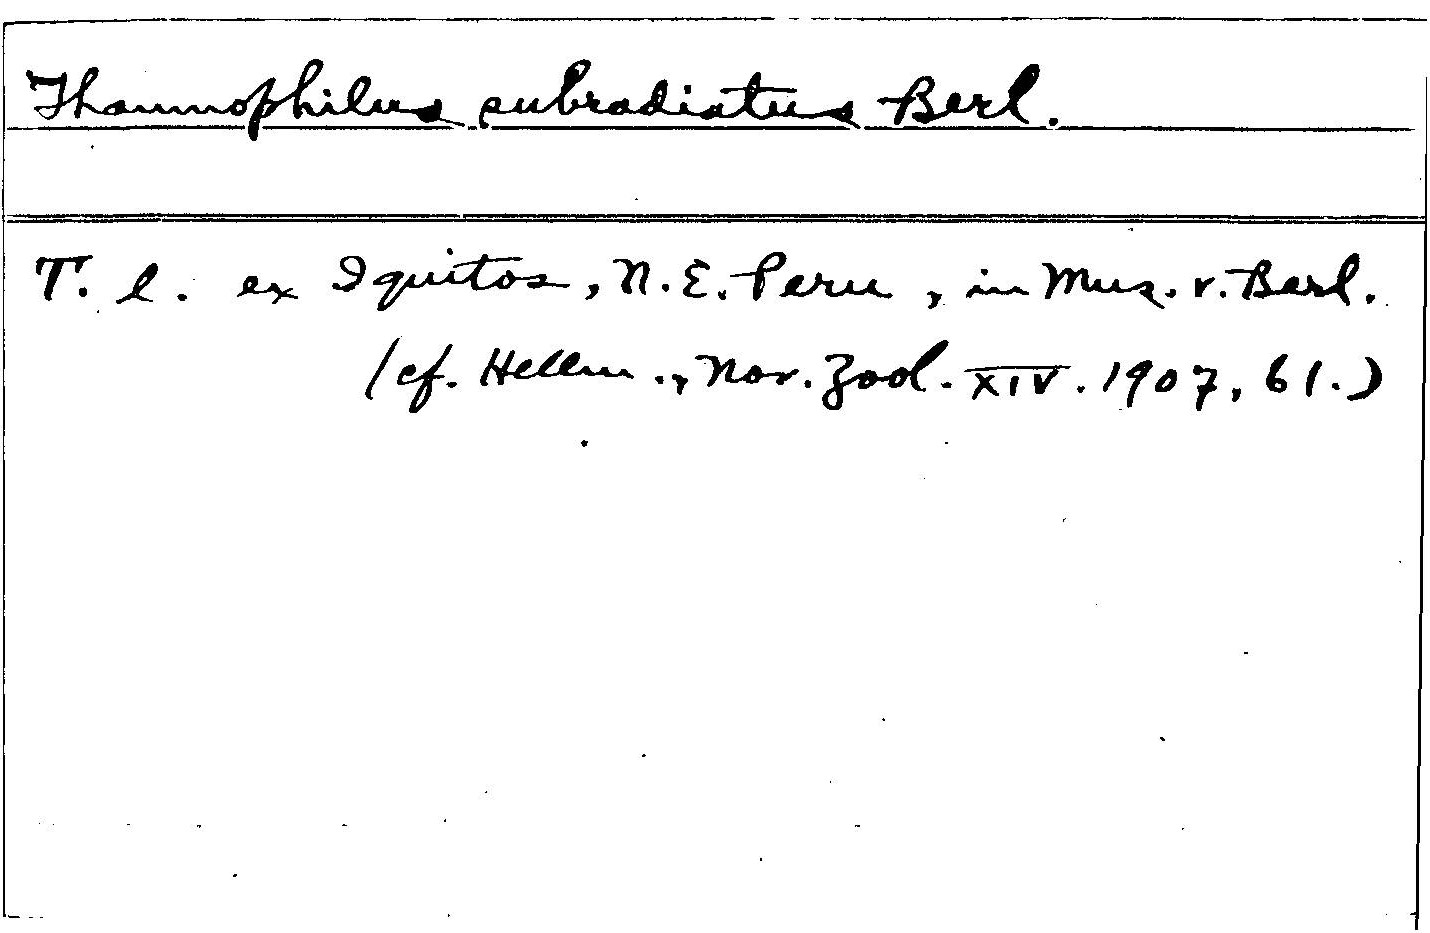 Thamnophilus subradiatus Berl.
T. l. ex Iquitos, N.E. Peru, in Mus. v. Berl.
(cf. Hellm., Nov. Zool. XIV. 1907, 61.)